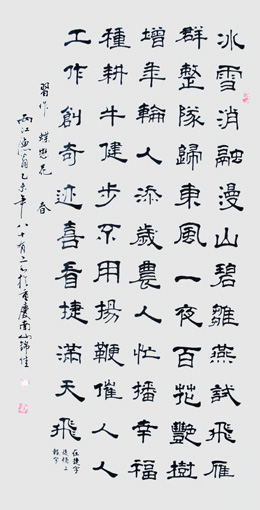 冰雪消融漫山碧雛燕試飛雁
群整隊歸東風一夜百花艷樹
增年輪人添歲農人忙播幸福
種耕牛健步不用揚鞭催人人
工作創奇迹喜看捷滿天飛
在捷字
後補上
報字
習作 蝶戀花 春
兩江漁翁乙未年八十有二於重慶南山